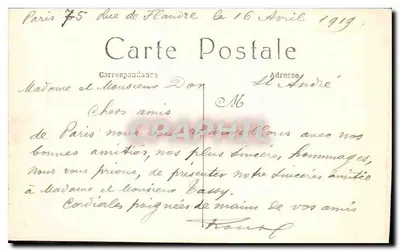 Paris 75 Rue de Flandre le 16 Avril 1919.
Carte Postale
Correspondance Adresse
Madame et Monsieur St André
Chers amis M
de Paris nous avec nos
bonnes amitiés, nos plus sincères hommages,
Nous vous prions, de présenter notre sincères amitiée
à Madame et Monsieur Tassy.
Cordiales poignées de mains de vos amis